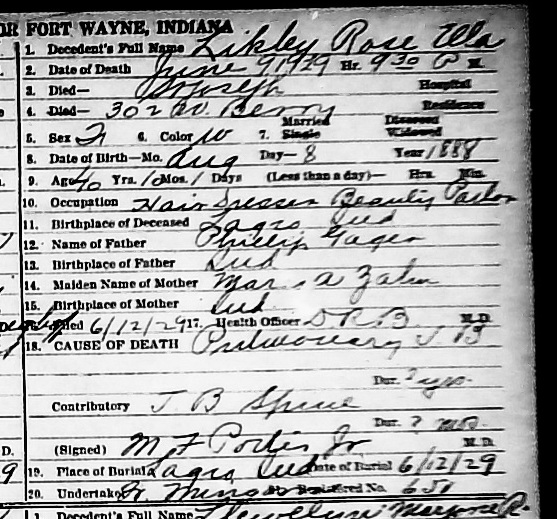 OR FORT WAYNE, INDIANA
1. Decedent's Full Name Likley Rose Ella
2. Date of Death June 9 1929 Hr. 9 30 P M.
3. Died— St Joseph Hospital
4. Died— 302 W. Berry Residence
5. Sex F 6. Color W 7. Married Single Divorced Widowed
8. Date of Birth—Mo. Aug Day— 8 Year 1888
9. Age 40 Yrs. 10 Mos. 1 Days (Less than a day)— Hrs. Min.
10. Occupation Hair Dresser Beauty Parlor
11. Birthplace of Deceased Lagro Ind
12. Name of Father Phillip Gager
13. Birthplace of Father Ind
14. Maiden Name of Mother Zahn
15. Birthplace of Mother Ind
16. Filed 6/12/29 17. Health Officer D R B M. D.
18. CAUSE OF DEATH Pulmonary T B
Dur. ? yrs.
Contributory T B Spine
Dur. ? mos.
D. (Signed) M F Porter Jr M. D.
9 19. Place of Burial Lagro Ind Date of Burial 6/12/29
20. Undertaker Registered No. 650
1. Decedent's Full Name Llewellyn Marjorie R.